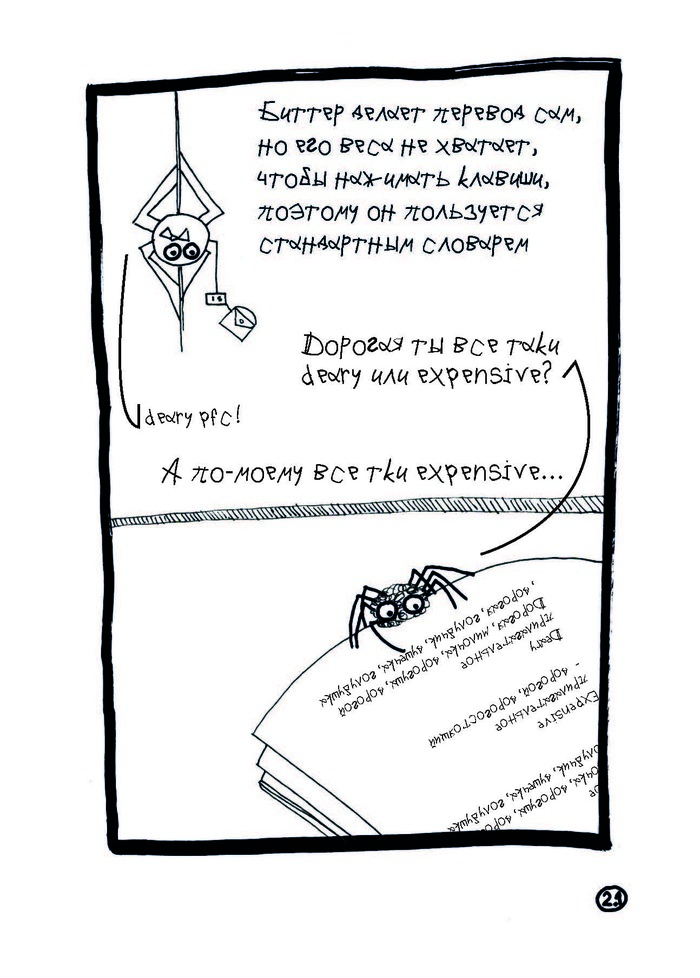 Биттер делает перевод сам,
но его веса не хватает,
чтобы нажимать клавиши,
поэтому он пользуется
стандартным словарем
1$
Дорогая ты все таки
deary или expensive?
deary pfc!
А по-моему все тки expensive...
, дорогая, голубчик, душечка, голубушка
Дорогой, милочка, дорогуша, дорогой
прилагательное
Deary
- дорогой, дорогостоящий
прилагательное
Expensive
голубчик, душечка, голубушка
дорогуша, дорогой
21